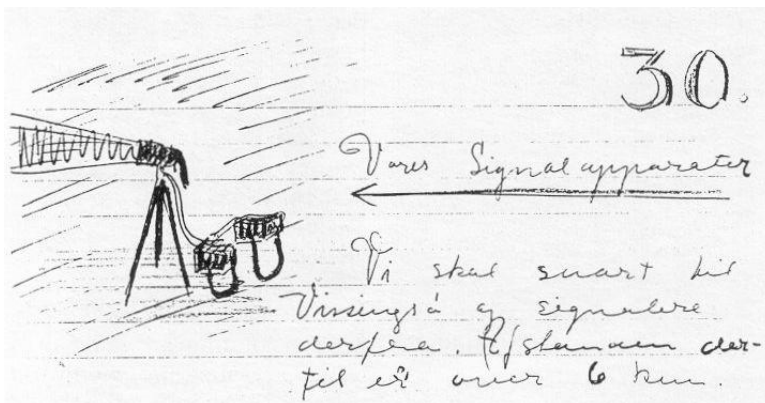 30.
Vores Signalapparater
Vi skal snart til
Vissingsö og signalere
derfra. Afstanden der-
til er over 6 km.